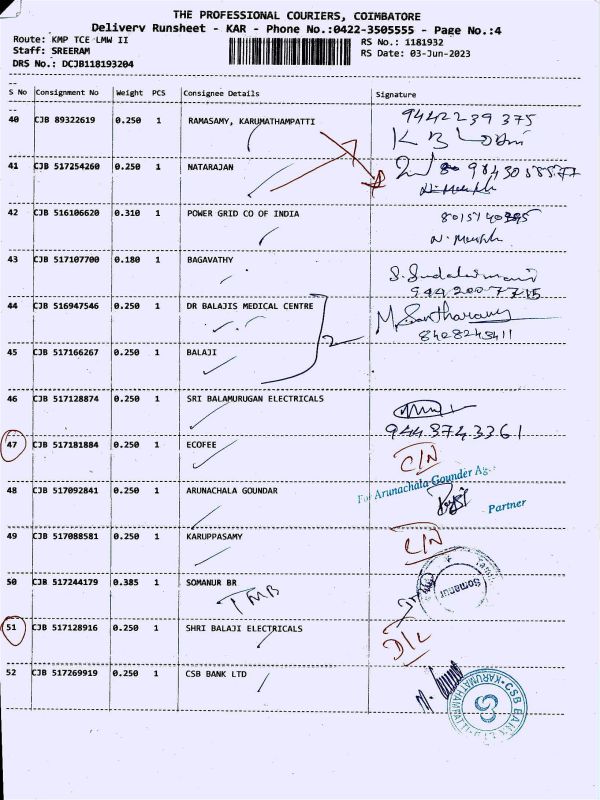 THE PROFESSIONAL COURIERS, COIMBATORE
Delivery Runsheet - KAR - Phone No.:0422-3505555 - Page No.:4
Route: KMP TCE LMW II
RS No.: 1181932
Staff: SREERAM
RS Date: 03-Jun-2023
DRS No.: DCJB118193204
S No Consignment No Weight PCS Consignee Details Signature
40 CJB 89322619 0.250 1 RAMASAMY, KARUMATHAMPATTI 9442239375
41 CJB 517254260 0.250 1 NATARAJAN
42 CJB 516106620 0.310 1 POWER GRID CO OF INDIA
43 CJB 517107700 0.180 1 BAGAVATHY
9442007715
44 CJB 516947546 0.250 1 DR BALAJIS MEDICAL CENTRE
2
8428245411
45 CJB 517166267 0.250 1 BALAJI
46 CJB 517128874 0.250 1 SRI BALAMURUGAN ELECTRICALS
9443743361
47 CJB 517181884 0.250 1 ECOFEE C/N
48 CJB 517092841 0.250 1 ARUNACHALA GOUNDAR
For Arunachala Gounder Ag
Partner
49 CJB 517088581 0.250 1 KARUPPASAMY C/N
50 CJB 517244179 0.385 1 SOMANUR BR
TMB
Somanur
51 CJB 517128916 0.250 1 SHRI BALAJI ELECTRICALS D/L
52 CJB 517269919 0.250 1 CSB BANK LTD
CSB BANK LTD
KARUMATHAMPATTI